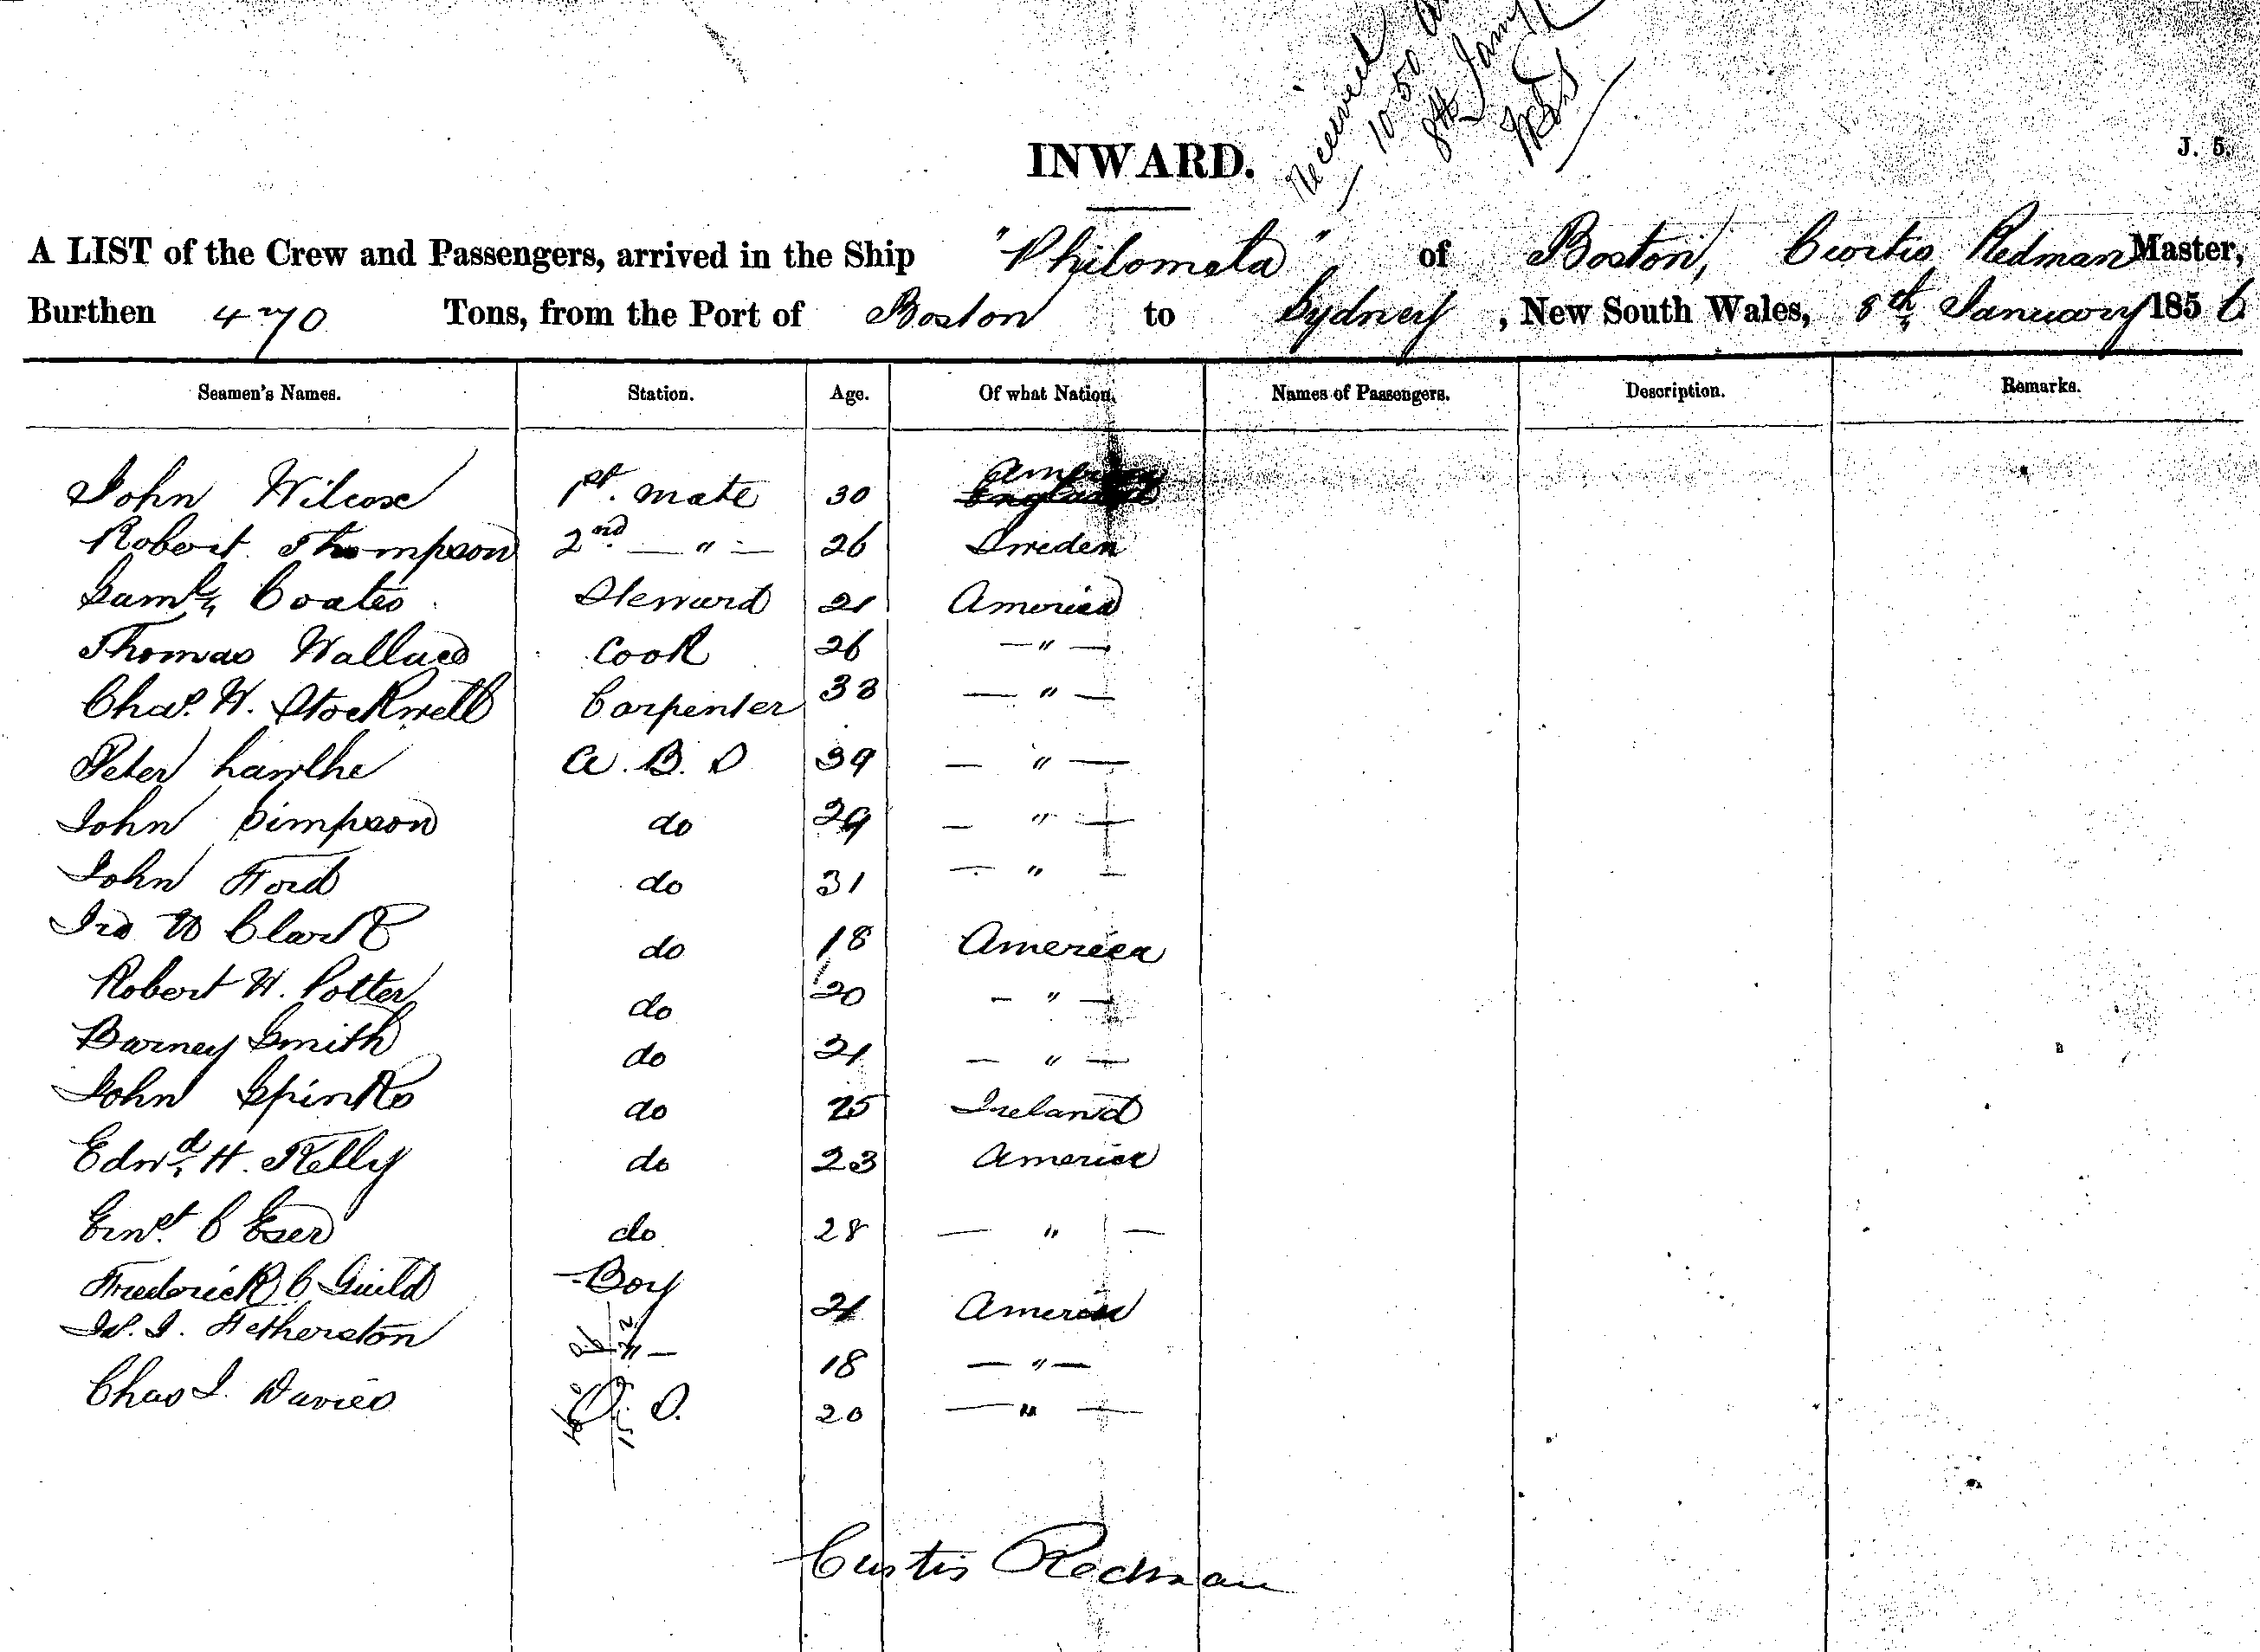 Received
10 50
8th Jany
INWARD.
J. 5.
A LIST of the Crew and Passengers, arrived in the Ship "Philomela" of Boston, Curtis Redman Master,
Burthen 470 Tons, from the Port of Boston to Sydney, New South Wales, 8th January 1856
Seamen's Names. Station. Age. Of what Nation. Names of Passengers. Description. Remarks.
John Wilcox 1st. mate 30 America England
Robert Thompson 2nd — " — 26 Sweden
Saml. Coates Steward 21 America
Thomas Wallace Cook 26 — " —
Chas. W. Stockwell Carpenter 33 — " —
Peter A. B. S 39 — " —
John Simpson do 29 — " —
John Ford do 31 — " —
Ira W Clark do 18 America
Robert H. Potter do 20 — " —
Barney Smith do 21 — " —
John Spinks do 25 Ireland
Edwd. H. Kelly do 23 America
C do 28 — " —
Frederick C Guild Boy 21 America
Fetherston — " — 18 — " —
Chas J. Davies O. S. 20 — " —
Curtis Redman